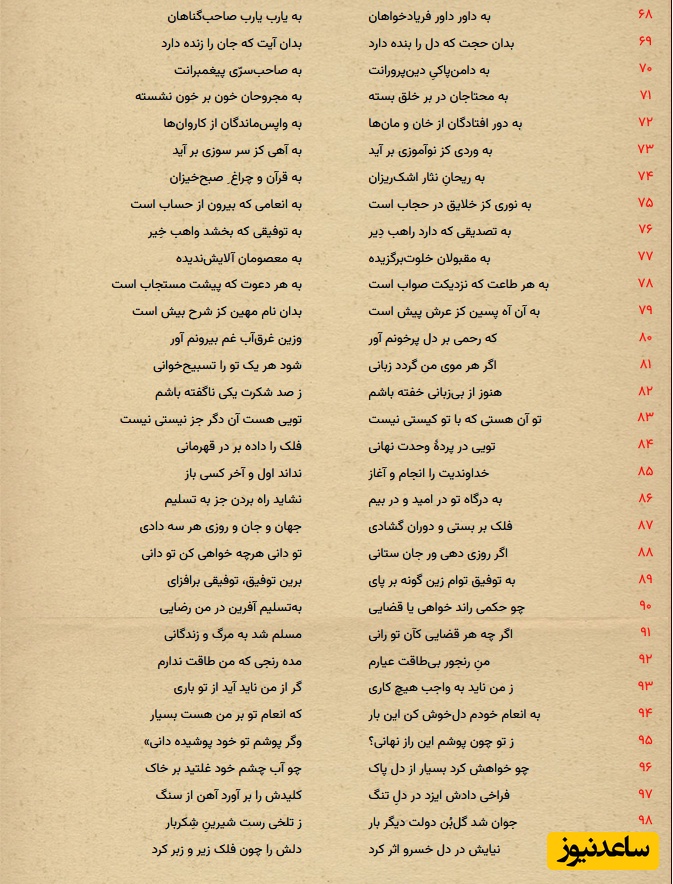 ۶۸ به داور داور فریادخواهان به یارب یارب صاحب‌گناهان
۶۹ بدان حجت که دل را بنده دارد بدان آیت که جان را زنده دارد
۷۰ به دامن‌پاکیِ دین‌پرورانت به صاحب‌سرّی پیغمبرانت
۷۱ به محتاجان در بر خلق بسته به مجروحان خون بر خون نشسته
۷۲ به دور افتادگان از خان و مان‌ها به واپس‌ماندگان از کاروان‌ها
۷۳ به وردی کز نوآموزی بر آید به آهی کز سر سوزی بر آید
۷۴ به ریحانِ نثار اشک‌ریزان به قرآن و چراغِ صبح‌خیزان
۷۵ به نوری کز خلایق در حجاب است به انعامی که بیرون از حساب است
۷۶ به تصدیقی که دارد راهب دِیر به توفیقی که بخشد واهب خِیر
۷۷ به مقبولان خلوت‌برگزیده به معصومان آلایش‌ندیده
۷۸ به هر طاعت که نزدیکت صواب است به هر دعوت که پیشت مستجاب است
۷۹ به آن آه پسین کز عرش پیش است بدان نام مهین کز شرح بیش است
۸۰ که رحمی بر دل پرخونم آور وزین غرق‌آب غم بیرونم آور
۸۱ اگر هر موی من گردد زبانی شود هر یک تو را تسبیح‌خوانی
۸۲ هنوز از بی‌زبانی خفته باشم ز صد شکرت یکی ناگفته باشم
۸۳ تو آن هستی که با تو کیستی نیست تویی هست آن دگر جز نیستی نیست
۸۴ تویی در پردهٔ وحدت نهانی فلک را داده بر در قهرمانی
۸۵ خداوندیت را انجام و آغاز نداند اول و آخر کسی باز
۸۶ به درگاه تو در امید و در بیم نشاید راه بردن جز به تسلیم
۸۷ فلک بر بستی و دوران گشادی جهان و جان و روزی هر سه دادی
۸۸ اگر روزی دهی ور جان ستانی تو دانی هرچه خواهی کن تو دانی
۸۹ به توفیق توام زین گونه بر پای برین توفیق، توفیقی برافزای
۹۰ چو حکمی راند خواهی یا قضایی به‌تسلیم آفرین در من رضایی
۹۱ اگر چه هر قضایی کآن تو رانی مسلم شد به مرگ و زندگانی
۹۲ منِ رنجور بی‌طاقت عیارم مده رنجی که من طاقت ندارم
۹۳ ز من ناید به واجب هیچ کاری گر از من ناید آید از تو باری
۹۴ به انعام خودم دل‌خوش کن این بار که انعام تو بر من هست بسیار
۹۵ ز تو چون پوشم این راز نهانی؟ وگر پوشم تو خود پوشیده دانی»
۹۶ چو خواهش کرد بسیار از دل پاک چو آب چشم خود غلتید بر خاک
۹۷ فراخی دادش ایزد در دلِ تنگ کلیدش را بر آورد آهن از سنگ
۹۸ جوان شد گل‌بُن دولت دیگر بار ز تلخی رست شیرینِ شِکربار
نیایش در دل خسرو اثر کرد دلش را چون فلک زیر و زبر کرد
ساعدنیوز